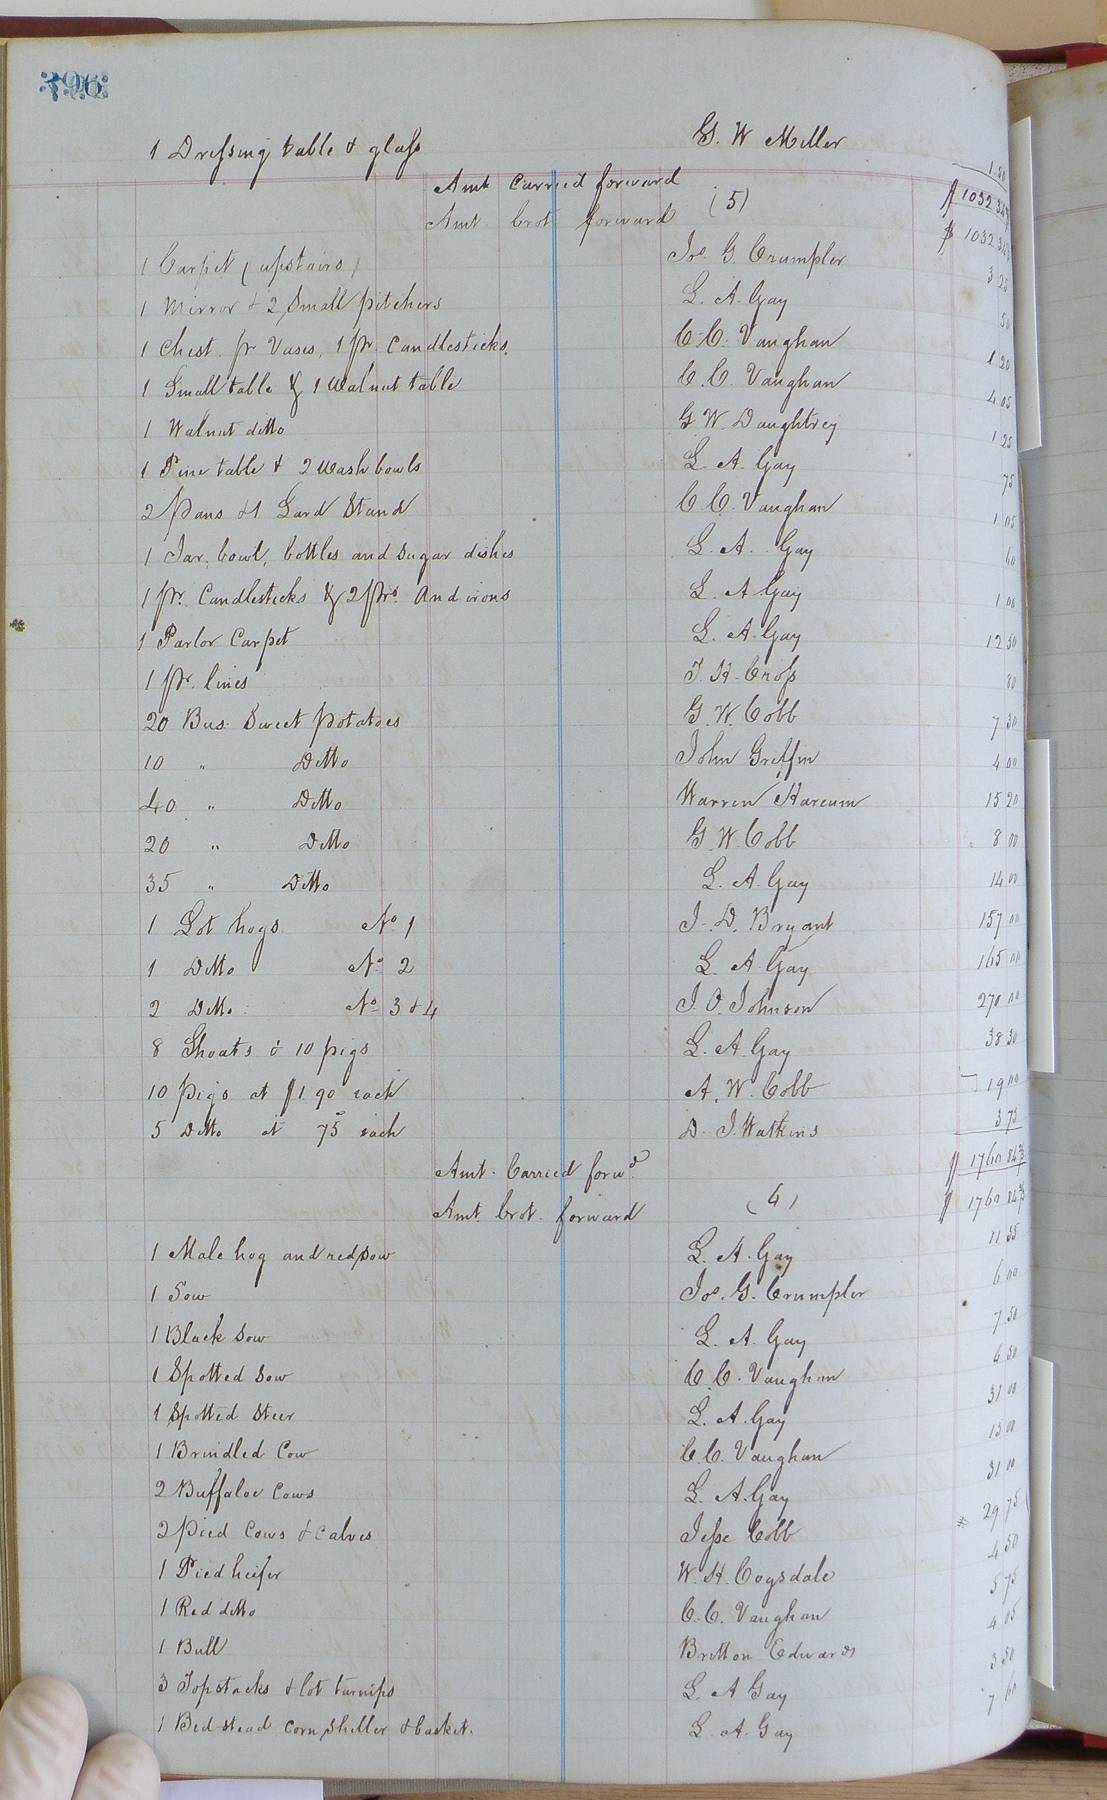 396
1 Dressing table & glass G. W Miller 1.50
Amt carried forward $1032.34
Amt. brot forward (5) $1032.34
1 Carpet (upstairs) Jos. G. Crumpler 3 25
1 Mirror & 2 Small pitchers L. A. Gay 50
1 Chest pr Vases, 1 pr Candlesticks. C. C. Vaughan 1 20
1 Small table & 1 Walnut table C. C. Vaughan 4 05
1 Walnut ditto G W. Daughtrey 1 25
1 Pine table & 2 Wash bowls L. A. Gay 75
2 Pans & 1 Lard Stand C. C. Vaughan 1 05
1 Jar, bowl, bottles and sugar dishes L. A. Gay 60
1 pr. Candlesticks & 2 prs. Andirons L. A Gay 1 00
1 Parlor Carpet L. A. Gay 12 50
1 pr. lines J. H. Cross 80
20 Bus. Sweet potatoes G. W. Cobb 7 30
10 " Ditto John Griffin 4 00
40 " Ditto Warren Harcum 15 20
20 " Ditto G. W. Cobb 8 00
35 " Ditto L. A. Gay 14 00
1 Lot hogs No 1 J. D. Bryant 157 00
1 Ditto No 2 L. A. Gay 165 00
2 Ditto No 3 & 4 J. O. Johnson 270 00
8 Shoats & 10 pigs L. A. Gay 38 30
10 Pigs at $1 90 each A. W. Cobb 19 00
5 Ditto at 75 each D. J. Watkins 3 75
Amt. Carried forwd. $1760 84
Amt. brot. forward (6) $1760 84
1 Male hog and red sow L. A. Gay 11 55
1 Sow Jos. G. Crumpler 6 00
1 Black Sow L. A. Gay 7 50
1 Spotted Sow C. C. Vaughan 6 50
1 Spotted Steer L. A. Gay 31 00
1 Brindled Cow C. C. Vaughan 15 00
2 Buffaloe Cows L. A. Gay 31 00
2 Pied Cows & calves Jesse Cobb 29 75
1 Pied heifer W. H. Cogsdale 4 50
1 Red ditto C. C. Vaughan 5 75
1 Bull Britton Edwards 4 05
3 Topstacks & lot turnips L. A Gay 3 50
1 Bed-stead corn sheller & basket. L. A. Gay 7 60